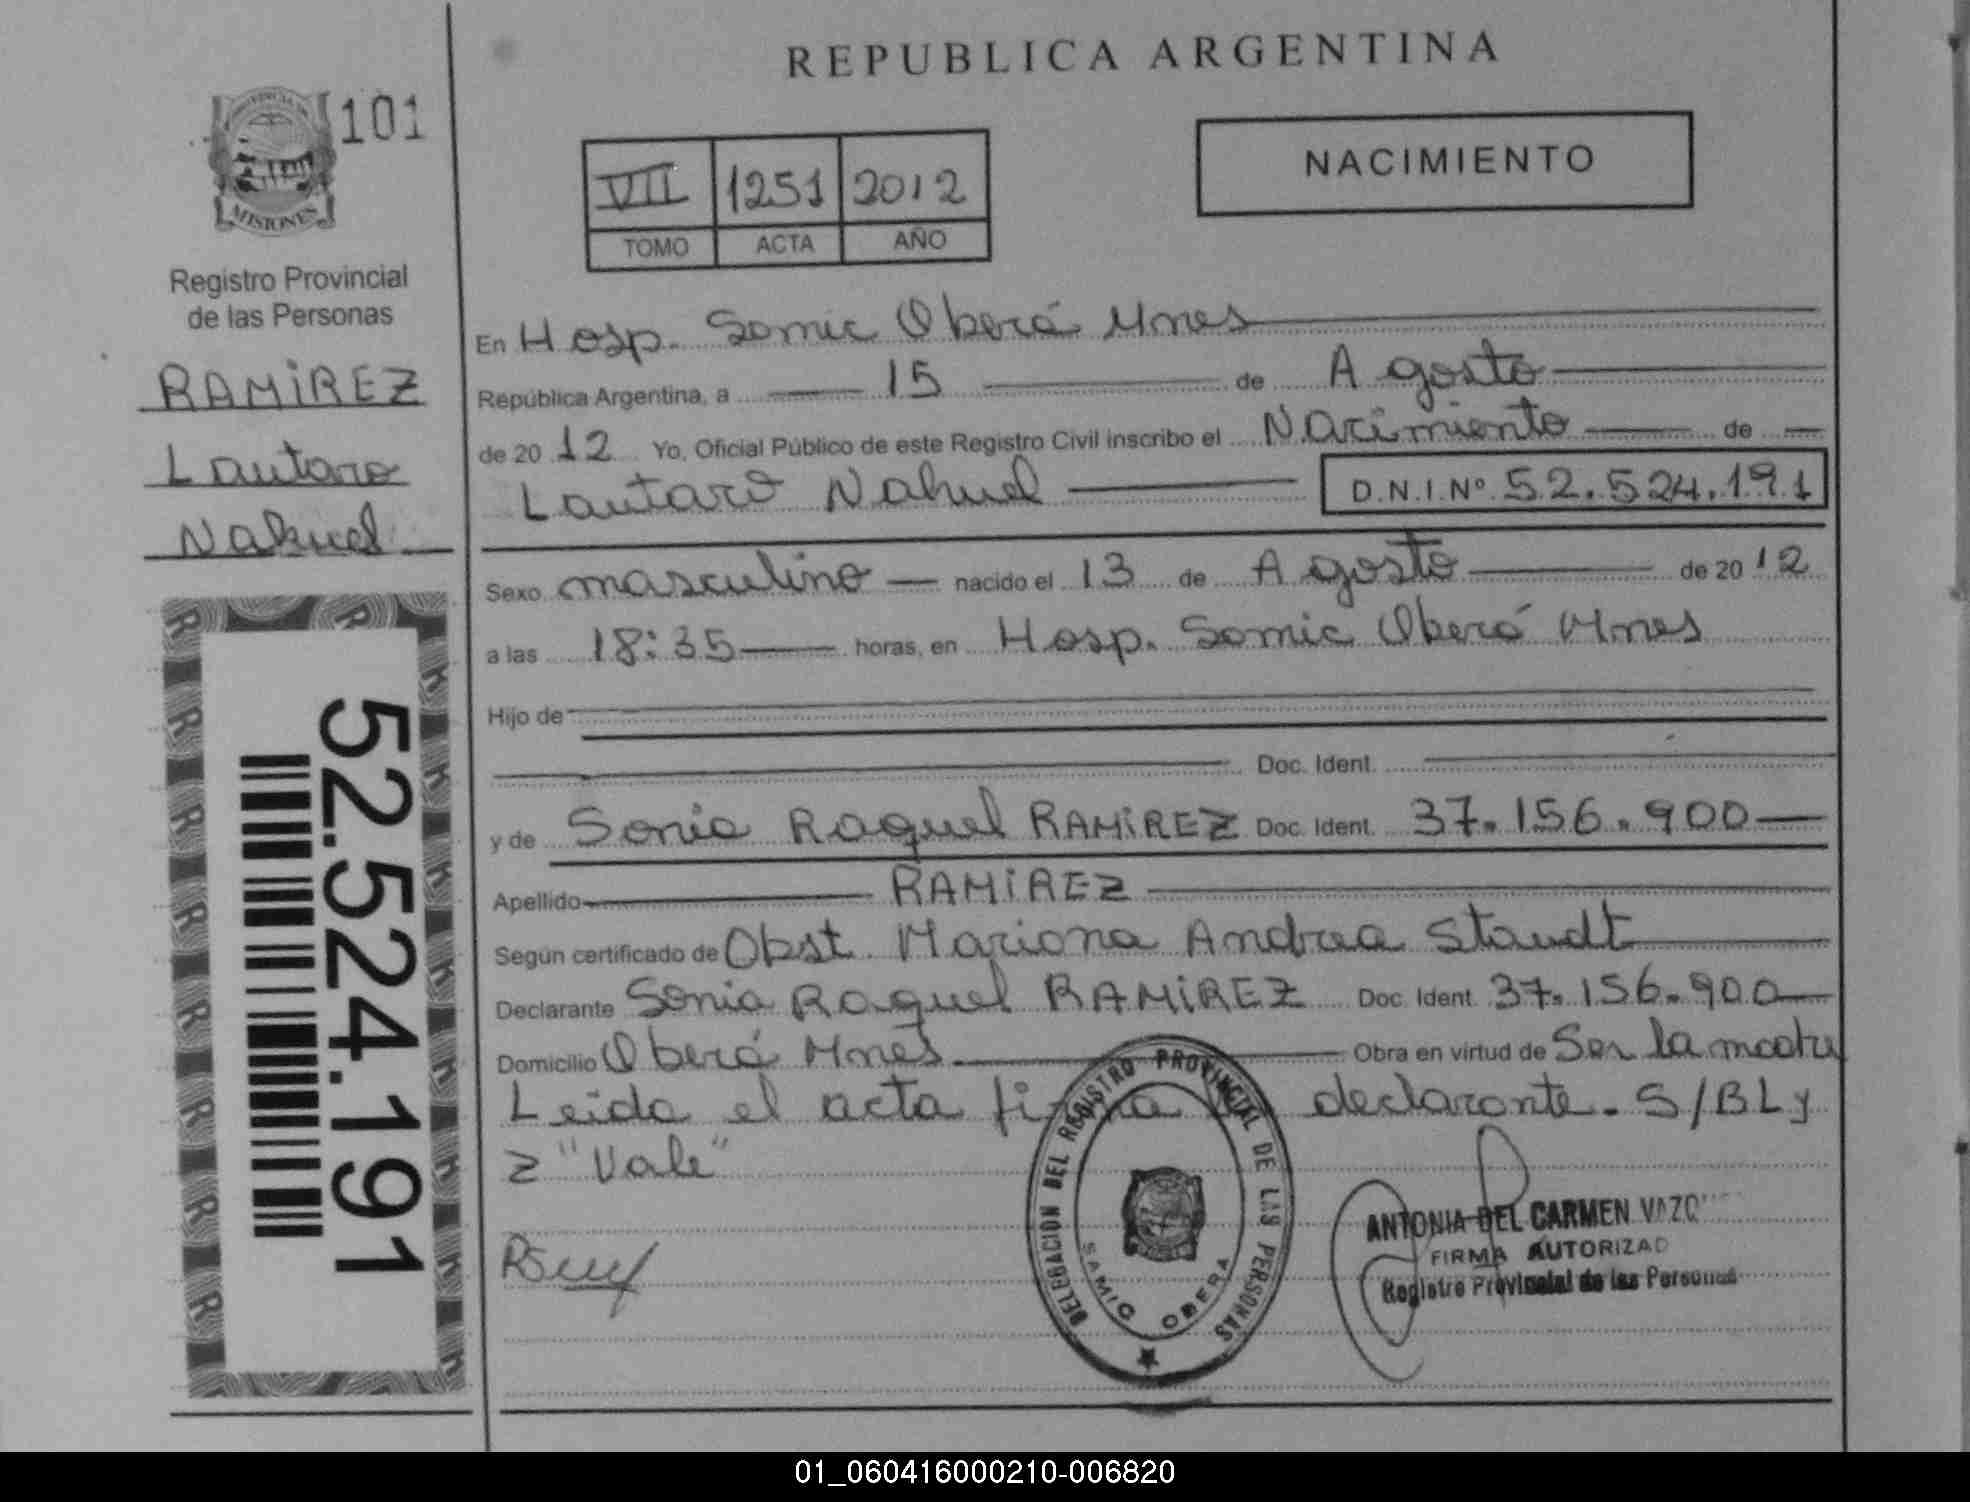 REPUBLICA ARGENTINA
PROVINCIA DE
MISIONES
101
Registro Provincial
de las Personas
RAMIREZ
Lautaro
Nahuel
52.524.191
VII 1251 2012
TOMO ACTA AÑO
NACIMIENTO
En Hosp. Samic Oberá Mnes
República Argentina, a 15 de Agosto
de 20 12 Yo, Oficial Público de este Registro Civil inscribo el Nacimiento de
Lautaro Nahuel D.N.I.Nº 52.524.191
Sexo masculino nacido el 13 de Agosto de 20 12
a las 18:35 horas, en Hosp. Samic Oberá Mnes
Hijo de
Doc. Ident.
y de Sonia Raquel RAMIREZ Doc. Ident. 37.156.900
Apellido RAMIREZ
Según certificado de Obst. Mariana Andrea Staudt
Declarante Sonia Raquel RAMIREZ Doc. Ident. 37.156.900
Domicilio Oberá Mnes Obra en virtud de Ser la madre
Leida el acta firma la declarante. S/BL y
z "Vale"
DELEGACION DEL REGISTRO PROVINCIAL DE LAS PERSONAS
SAMIC OBERA
ANTONIA DEL CARMEN
FIRMA AUTORIZAD
Registro Provincial de las Personas
01_060416000210-006820